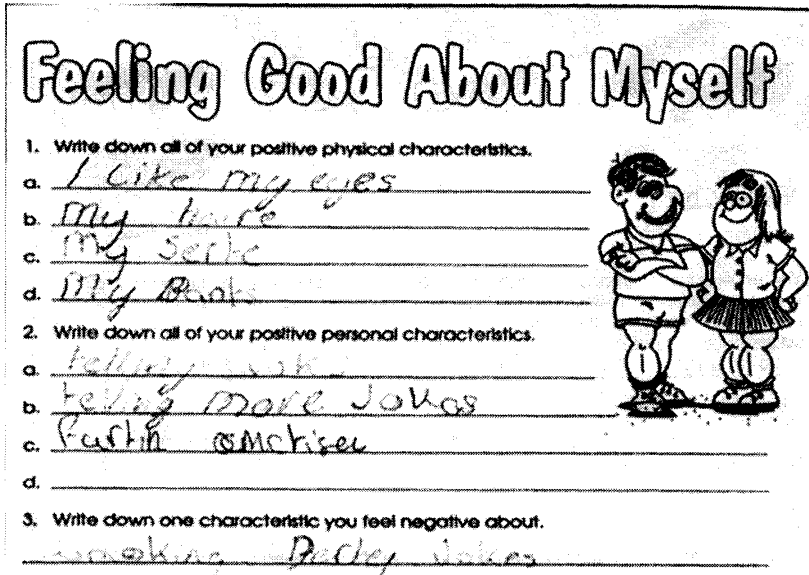 Feeling Good About Myself
1. Write down all of your positive physical characteristics.
a. I like my eyes
b. my haire
c. my
d. my Pants
2. Write down all of your positive personal characteristics.
a. telling
b. telling more Jokes
c.
d.
3. Write down one characteristic you feel negative about.
Jokes